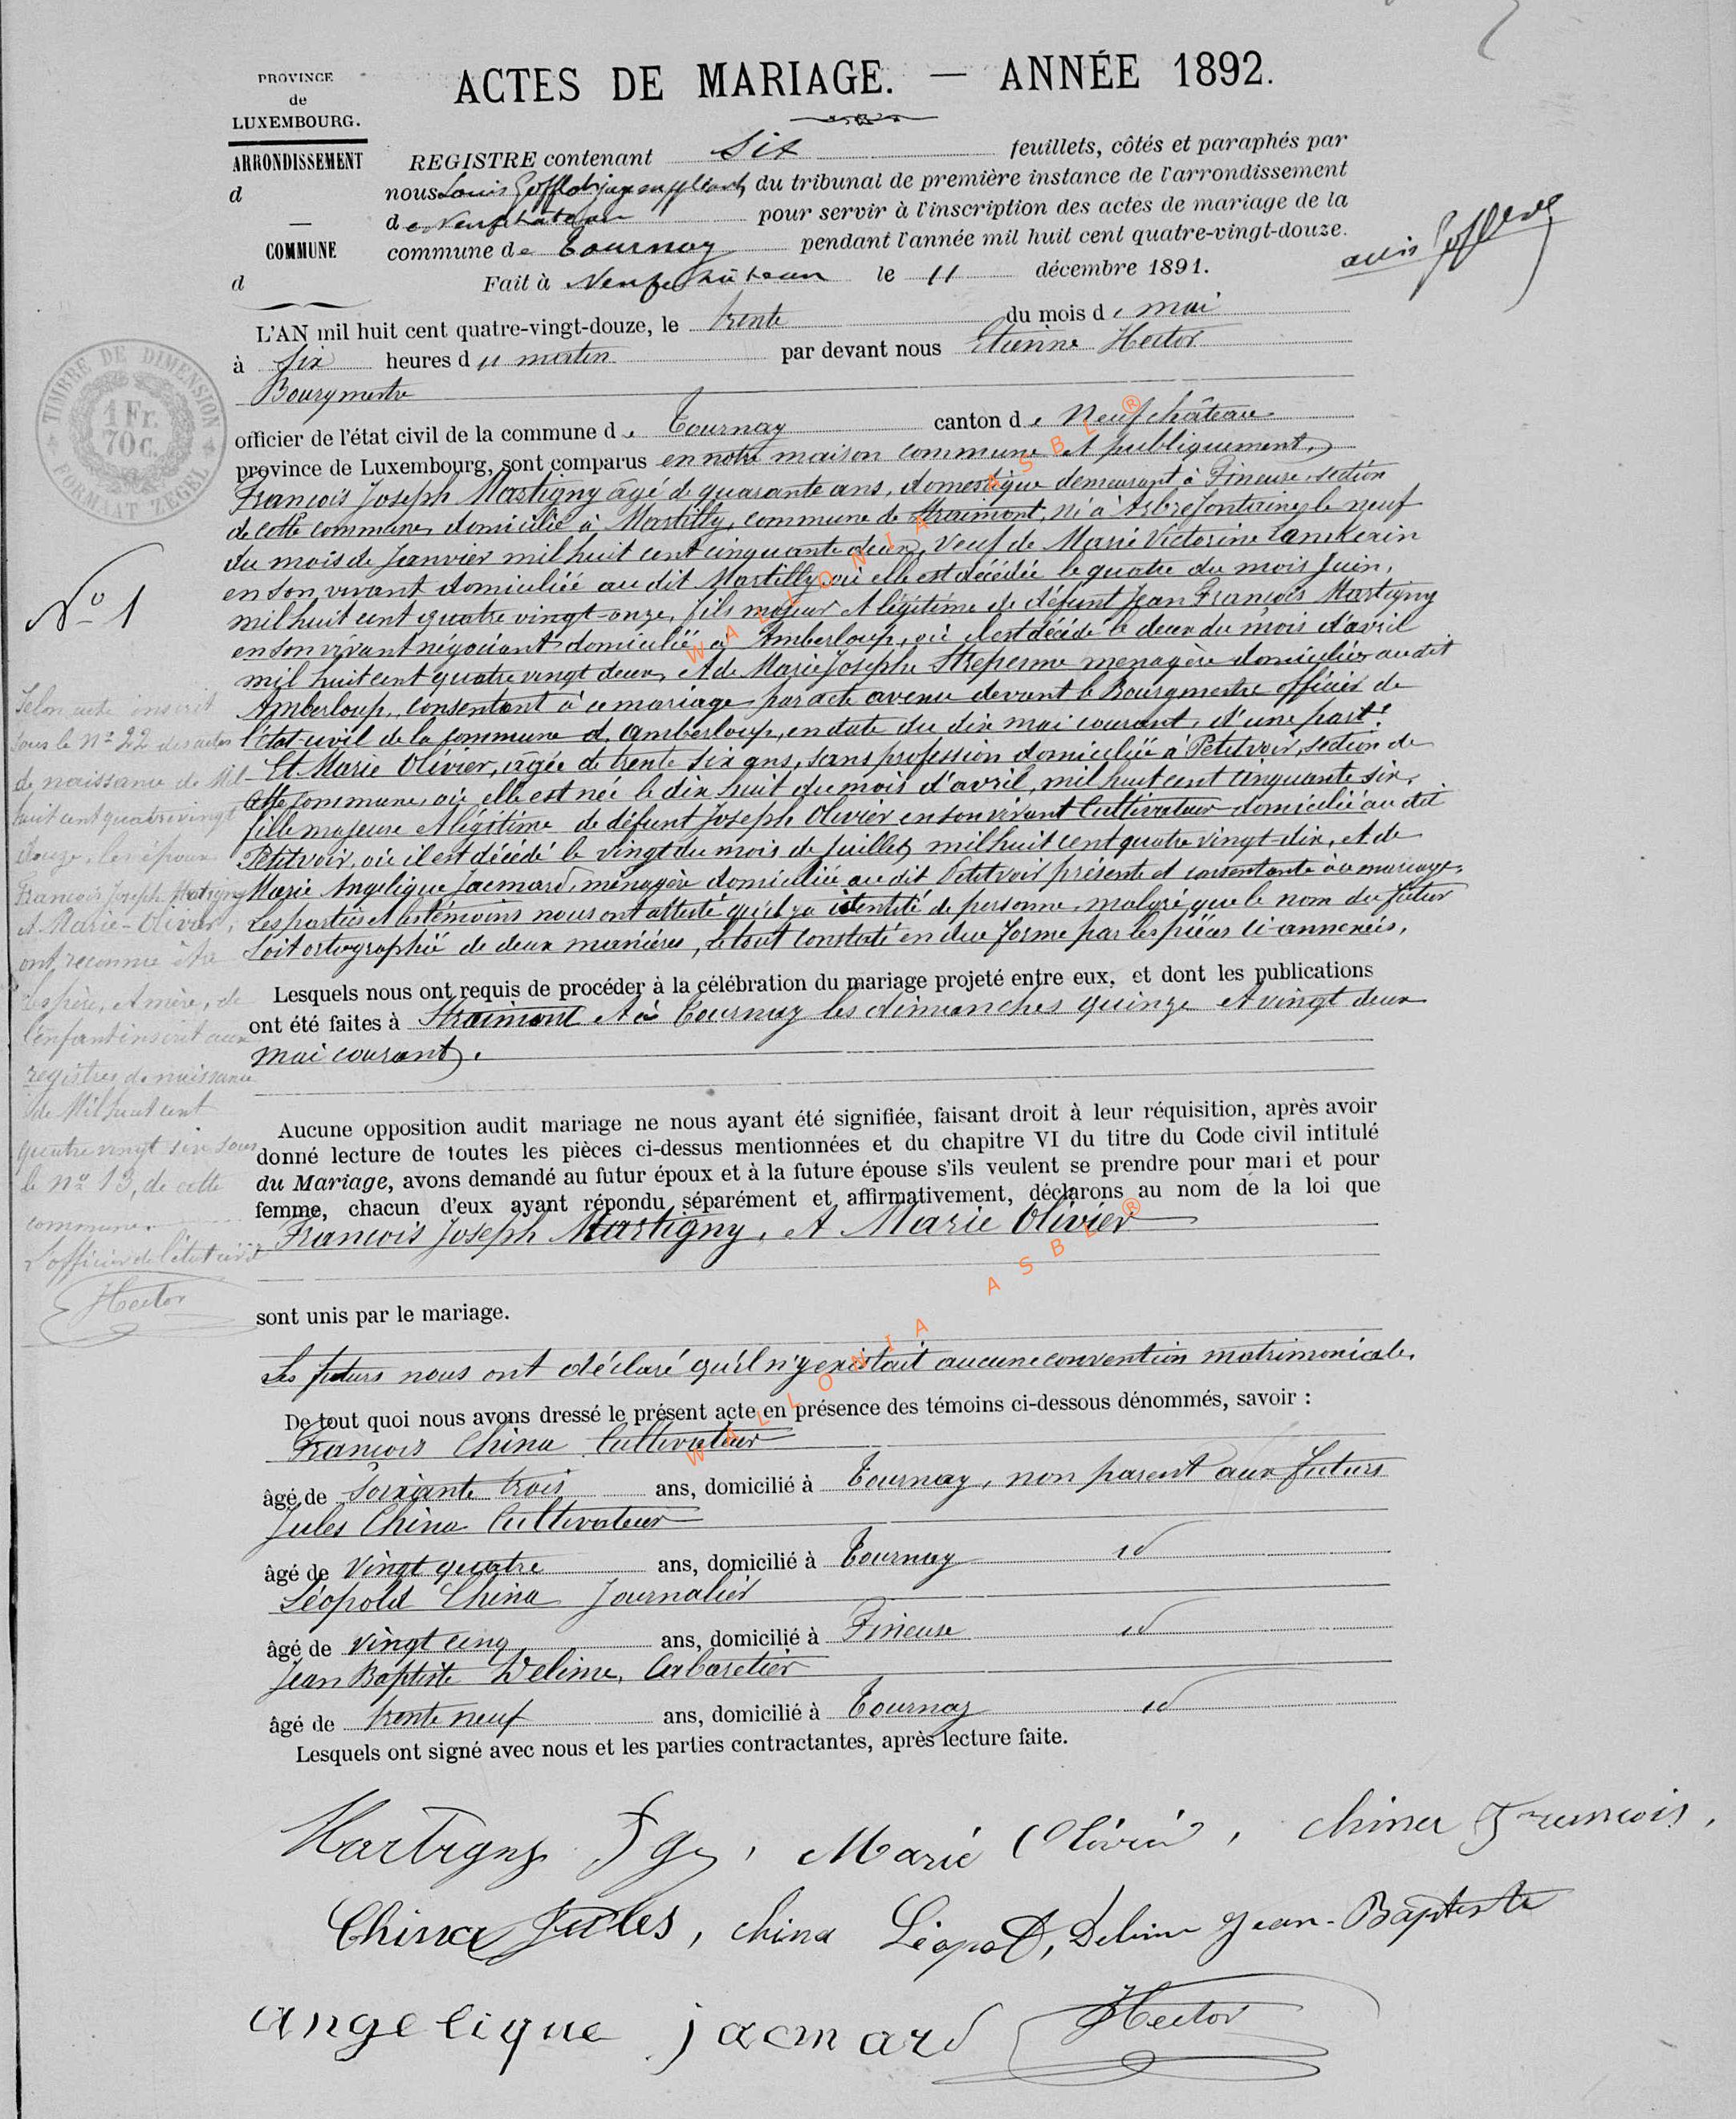 ACTES DE MARIAGE. — ANNÉE 1892.
PROVINCE
de
LUXEMBOURG.
ARRONDISSEMENT
d
—
COMMUNE
d
REGISTRE contenant Six feuillets, côtés et paraphés par
nous Louis Gofflot juge suppléant, du tribunal de première instance de l'arrondissement
de Neufchâteau pour servir à l'inscription des actes de mariage de la
commune de Tournay pendant l'année mil huit cent quatre-vingt-douze.
Fait à Neufchâteau le 11 décembre 1891.
TIMBRE DE DIMENSION
1 Fr.
70 c.
FORMAAT ZEGEL
L'AN mil huit cent quatre-vingt-douze, le trente du mois de mai
à six heures du matin par devant nous Etienne Hector
Bourgmestre
officier de l'état civil de la commune de Tournay canton de Neufchâteau
province de Luxembourg, sont comparus en notre maison commune et publiquement,
François Joseph Martigny âgé de quarante ans, domestique demeurant à Fineuse, section
de cette commune, domicilié à Martilly, commune de Straimont, né à Arbrefontaine, le neuf
du mois de Janvier mil huit cent cinquante deux, Veuf de Marie Victorine
en son vivant domiciliée au dit Martilly, où elle est décédée le quatre du mois Juin,
mil huit cent quatre vingt-onze, fils majeur et légitime de défunt Jean François Martigny
en son vivant négociant domicilié à Amberloup, où il est décédé le deux du mois d'avril
mil huit cent quatre vingt deux, et de Marie Josephe menagère domiciliée audit
Amberloup, consentant à ce mariage par acte avenu devant le Bourgmestre officier de
l'état civil de la commune d'Amberloup, en date du dix mai courant, d'une part.
Et Marie Olivier, âgée de trente six ans, sans profession domiciliée à Petitvoir, section de
cette commune, où elle est née le dix huit du mois d'avril, mil huit cent cinquante six,
fille majeure et légitime de défunt Joseph Olivier en son vivant Cultivateur domicilié au dit
Petitvoir, où il est décédé le vingt du mois de Juillet mil huit cent quatre vingt-dix, et de
Marie Angelique Jacmard, ménagère domiciliée au dit Petitvoir présente et consentante à ce mariage.
Les parties et les témoins nous ont attesté qu'il y a identité de personne, malgré que le nom du futur
soit ortographié de deux manières, le tout constaté en due forme par les pièces ci-annexées.
Lesquels nous ont requis de procéder à la célébration du mariage projeté entre eux, et dont les publications
ont été faites à Straimont et à Tournay les dimanches quinze et vingt deux
mai courant.
Aucune opposition audit mariage ne nous ayant été signifiée, faisant droit à leur réquisition, après avoir
donné lecture de toutes les pièces ci-dessus mentionnées et du chapitre VI du titre du Code civil intitulé
du Mariage, avons demandé au futur époux et à la future épouse s'ils veulent se prendre pour mari et pour
femme, chacun d'eux ayant répondu séparément et affirmativement, déclarons au nom de la loi que
François Joseph Martigny, et Marie Olivier
sont unis par le mariage.
Les futurs nous ont déclaré qu'il n'y existait aucune convention matrimoniale.
De tout quoi nous avons dressé le présent acte en présence des témoins ci-dessous dénommés, savoir :
François China Cultivateur
âgé de Soixante trois ans, domicilié à Tournay, non parent aux futurs
Jules China Cultivateur
âgé de Vingt quatre ans, domicilié à Tournay id
Léopold China Journalier
âgé de vingt cinq ans, domicilié à Fineuse id
Jean Baptiste Delime, Cabaretier
âgé de trente neuf ans, domicilié à Tournay id
Lesquels ont signé avec nous et les parties contractantes, après lecture faite.
Martigny Marie Olivier, China François,
China Jules, China Léopold, Delime Jean-Baptiste
angelique jacmard Hector
No 1
Selon acte inscrit
sous le No 22 des actes
de naissance de Mil
huit cent quatre vingt
douze, les époux
François Joseph Martigny
et Marie-Olivier,
ont reconnu être
les père, et mère, de
l'enfant inscrit aux
registres de naissance
de Mil huit cent
quatre vingt six sous
le no 13, de cette
commune.
L'officier de l'état civil
Hector
WALLONIA ASBL ®
WALLONIA ASBL ®